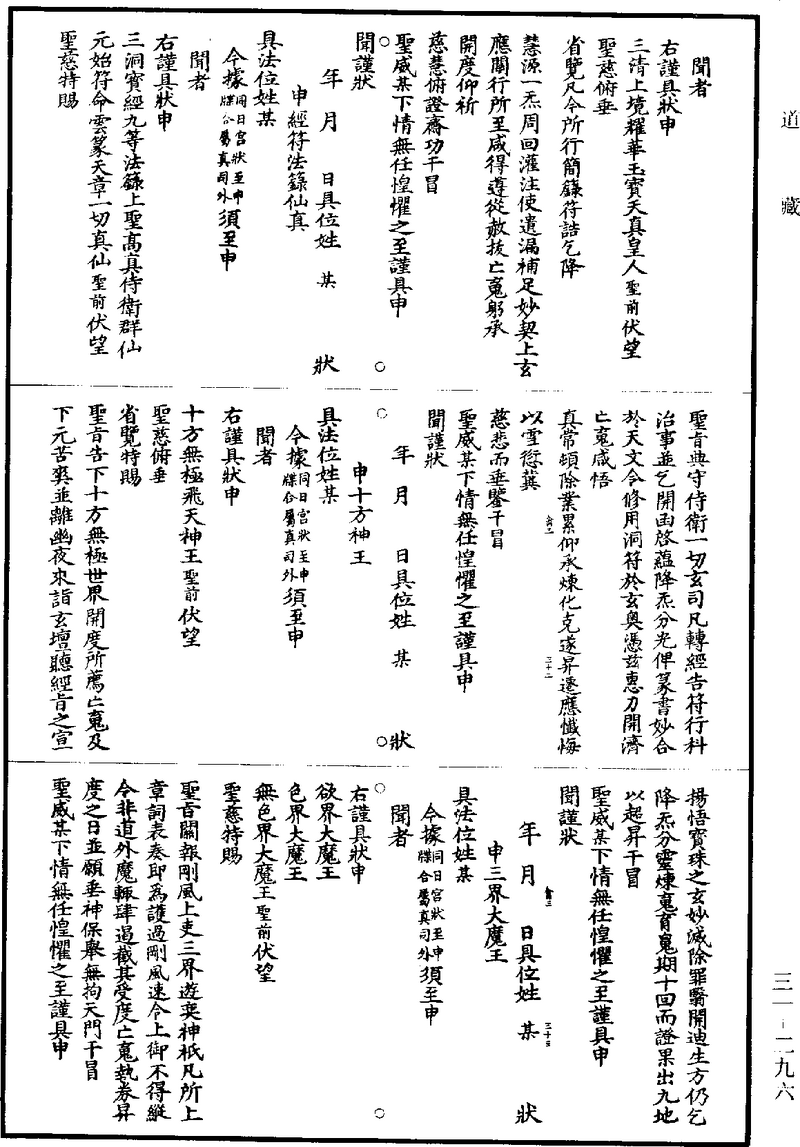 道藏
聞者
右謹具狀申
三清上境耀華玉寶天真皇人聖前伏望
聖慈俯垂
省覽凡今所行簡籙符誥乞降
慧源一炁周回灌注使遺漏補足妙契上玄
應關行所至咸得遵從赦拔亡䰟躬承
開度仰祈
慈慧俯證齋功干冒
聖威某下情無任惶懼之至謹具申
聞謹狀
年 月 日具位姓 某 狀
申經符法籙仙真
具法位姓某
今據同日宮狀至申牒合屬真司外須至申
聞者
右謹具狀申
三洞寶經九等法籙上聖髙真侍衛群仙
元始符命雲篆天章一切真仙聖前伏望
聖慈特賜
聖旨典守侍衛一切玄司凡轉經告符行科
治事並乞開函啓蘊降炁分光俾篆書妙合
於天文令修用洞符於玄奧憑兹惠力開濟
亡䰟咸悟
真常頓除業累仰承煉化克遂昇遷應懺悔
以雪愆䔬
慈悲而垂鑒干冒
聖威某下情無任惶懼之至謹具申
聞謹狀
年 月 日具位姓 某 狀
申十方神王
具法位姓某
今據同日宮狀至申牒合屬真司外須至申
聞者
右謹具狀申
十方無極飛天神王聖前伏望
聖慈俯垂
省覽特賜
聖旨告下十方無極世界開度所薦亡䰟及
下元苦爽並離幽夜來詣玄壇聽經旨之宣
揚悟寶珠之玄妙滅除罪翳開迪生方仍乞
降炁分靈煉䰟育䰟期十回而證果出九地
以超昇干冒
聖威某下情無任惶懼之至謹具申
聞謹狀
年 月 日具位姓 某 狀
申三界大魔王
具法位姓某
今據同日宮狀至申牒合屬真司外須至申
聞者
右謹具狀申
欲界大魔王
色界大魔王
無色界大魔王聖前伏望
聖慈特賜
聖旨關報剛風上吏三界遊奕神祇凡所上
章詞表奏即為護過剛風速令上御不得縱
令非道外魔輙肆遏截其受度亡䰟執券昇
度之日並願垂神保舉無拘天門干冒
聖威某下情無任惶懼之至謹具申
三一－二九六